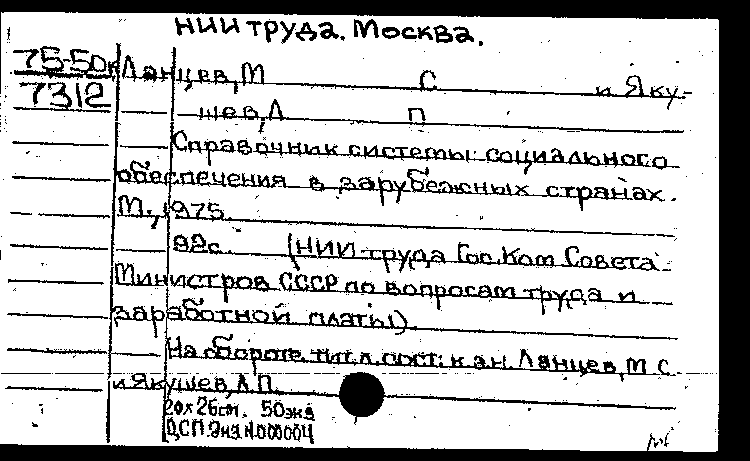 НИИ труда. Москва.
75-50к Ланцев, М С и Яку-
7312
шев, Л П
Справочник системы социального
обеспечения в зарубежных странах.
М., 1975.
92с. (НИИ труда Гос. Ком Совета
Министров СССР по вопросам труда и
заработной платы).
На обороте тит. л. сост: к.э.н. Ланцев, М С.
и Якушев, Л.П.
20х26см. 50экз
ДСП. Экз N.000004